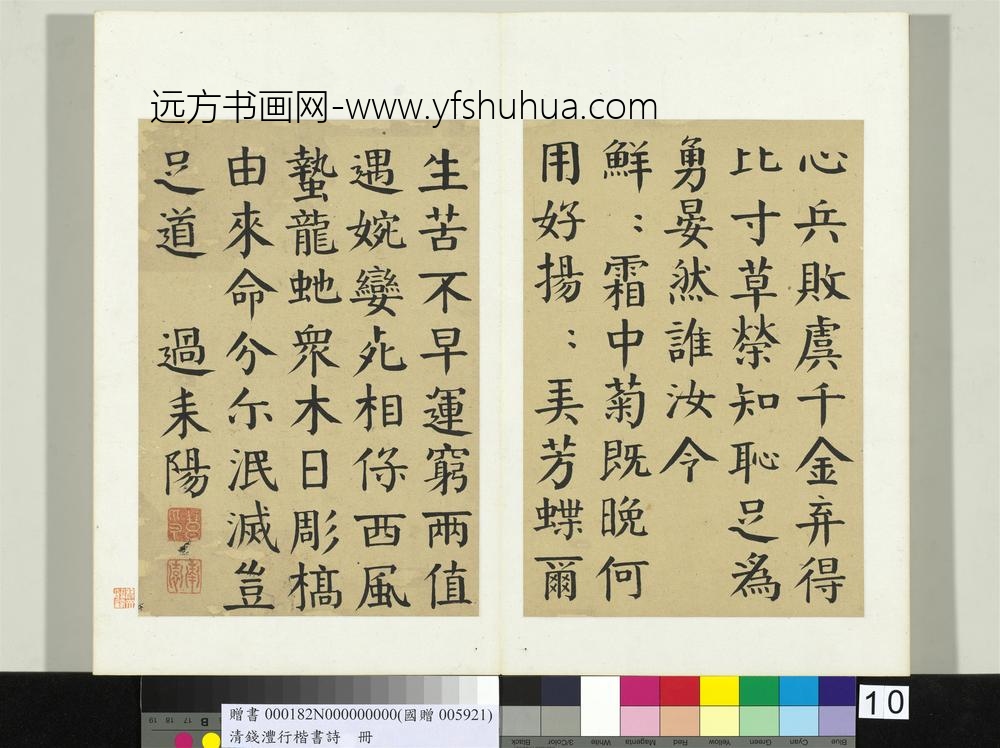 远方书画网-www.yfshuhua.com
心兵敗虞千金弃得
比寸草榮知恥足為
勇晏然誰汝今
鮮：霜中菊既晚何
用好揚：美芳蝶爾
生苦不早運窮兩值
遇婉孌死相保西風
蟄龍虵衆木日彫槁
由來命分尔泯滅豈
足道　過耒陽
10
贈書 000182N000000000(國贈 005921)
清錢灃行楷書詩　冊
Black
3/Color
White
Magenta
Red
Yellow
Green
Cyan
Blue
19 18 17 16 B